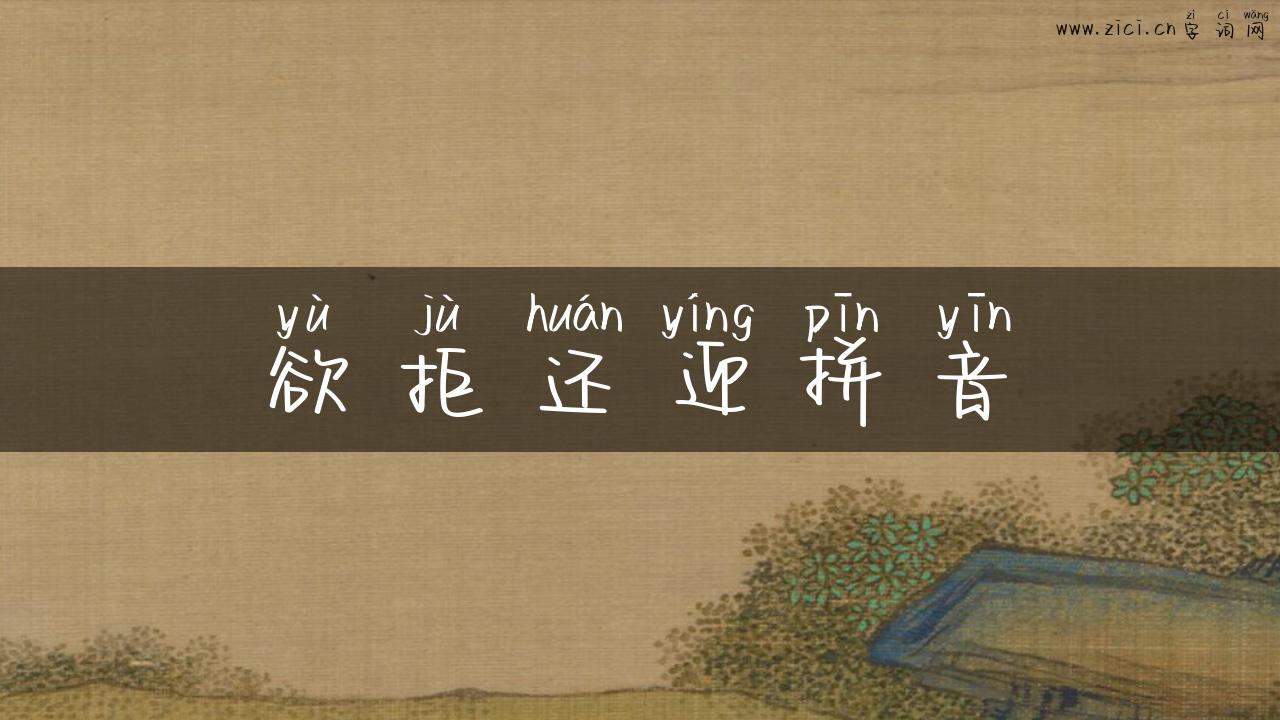 zì cí wǎng
www.zici.cn字词网
yù jù huán yíng pīn yīn
欲拒还迎拼音